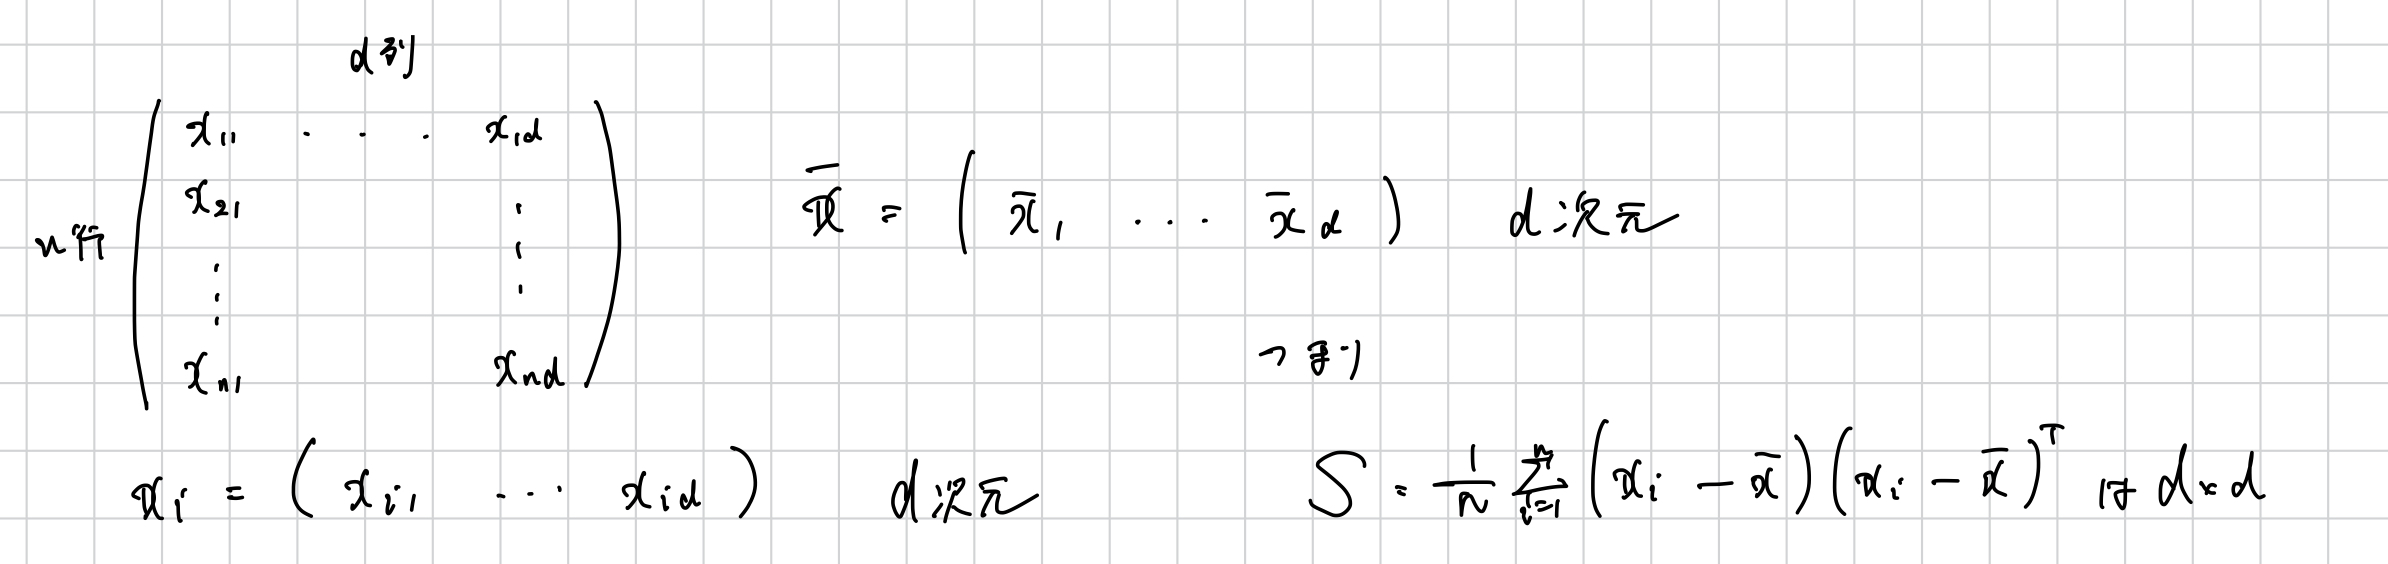 d列
n行 ( x₁₁ · · · x₁d
x₂₁ ⋮
⋮ ⋮
xₙ₁ xₙd )
x̄ = ( x̄₁ ··· x̄d ) d次元
xᵢ = ( xᵢ₁ ··· xᵢd ) d次元
つまり
S = 1/n Σᵢ₌₁ⁿ (xᵢ − x̄)(xᵢ − x̄)ᵀ は d×d